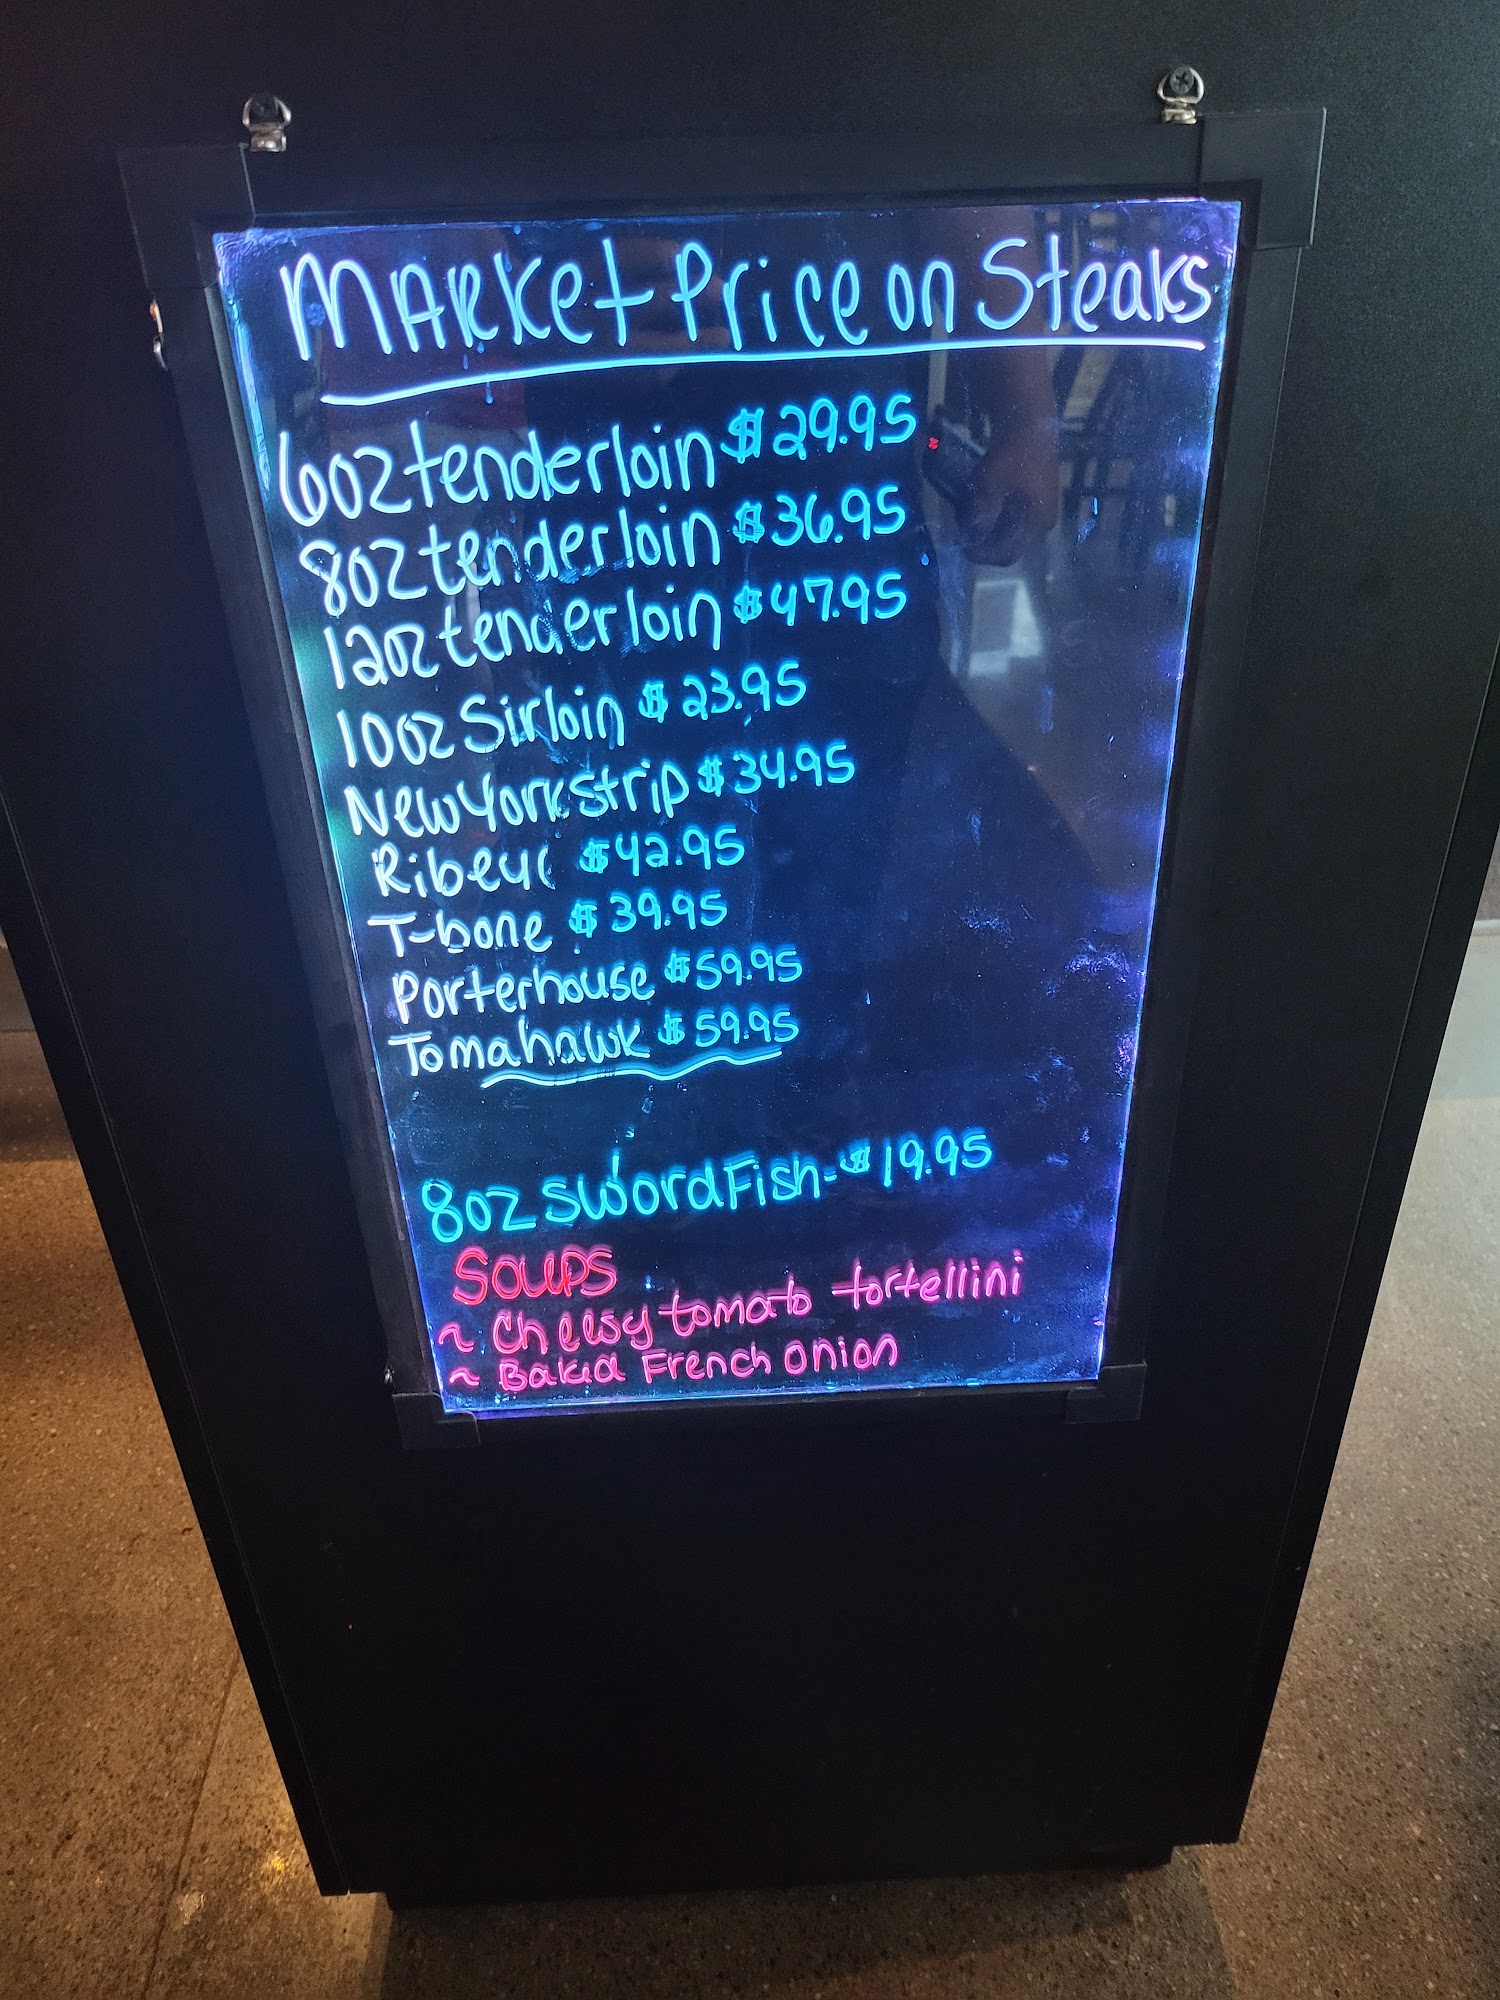 Market Price on Steaks
6oz tenderloin $29.95
8oz tenderloin $36.95
12oz tenderloin $47.95
10oz Sirloin $23.95
New York strip $34.95
Ribeye $42.95
T-bone $39.95
Porterhouse $59.95
Tomahawk $59.95
8oz swordFish - $19.95
Soups
~ Cheesy tomato tortellini
~ Baked French Onion